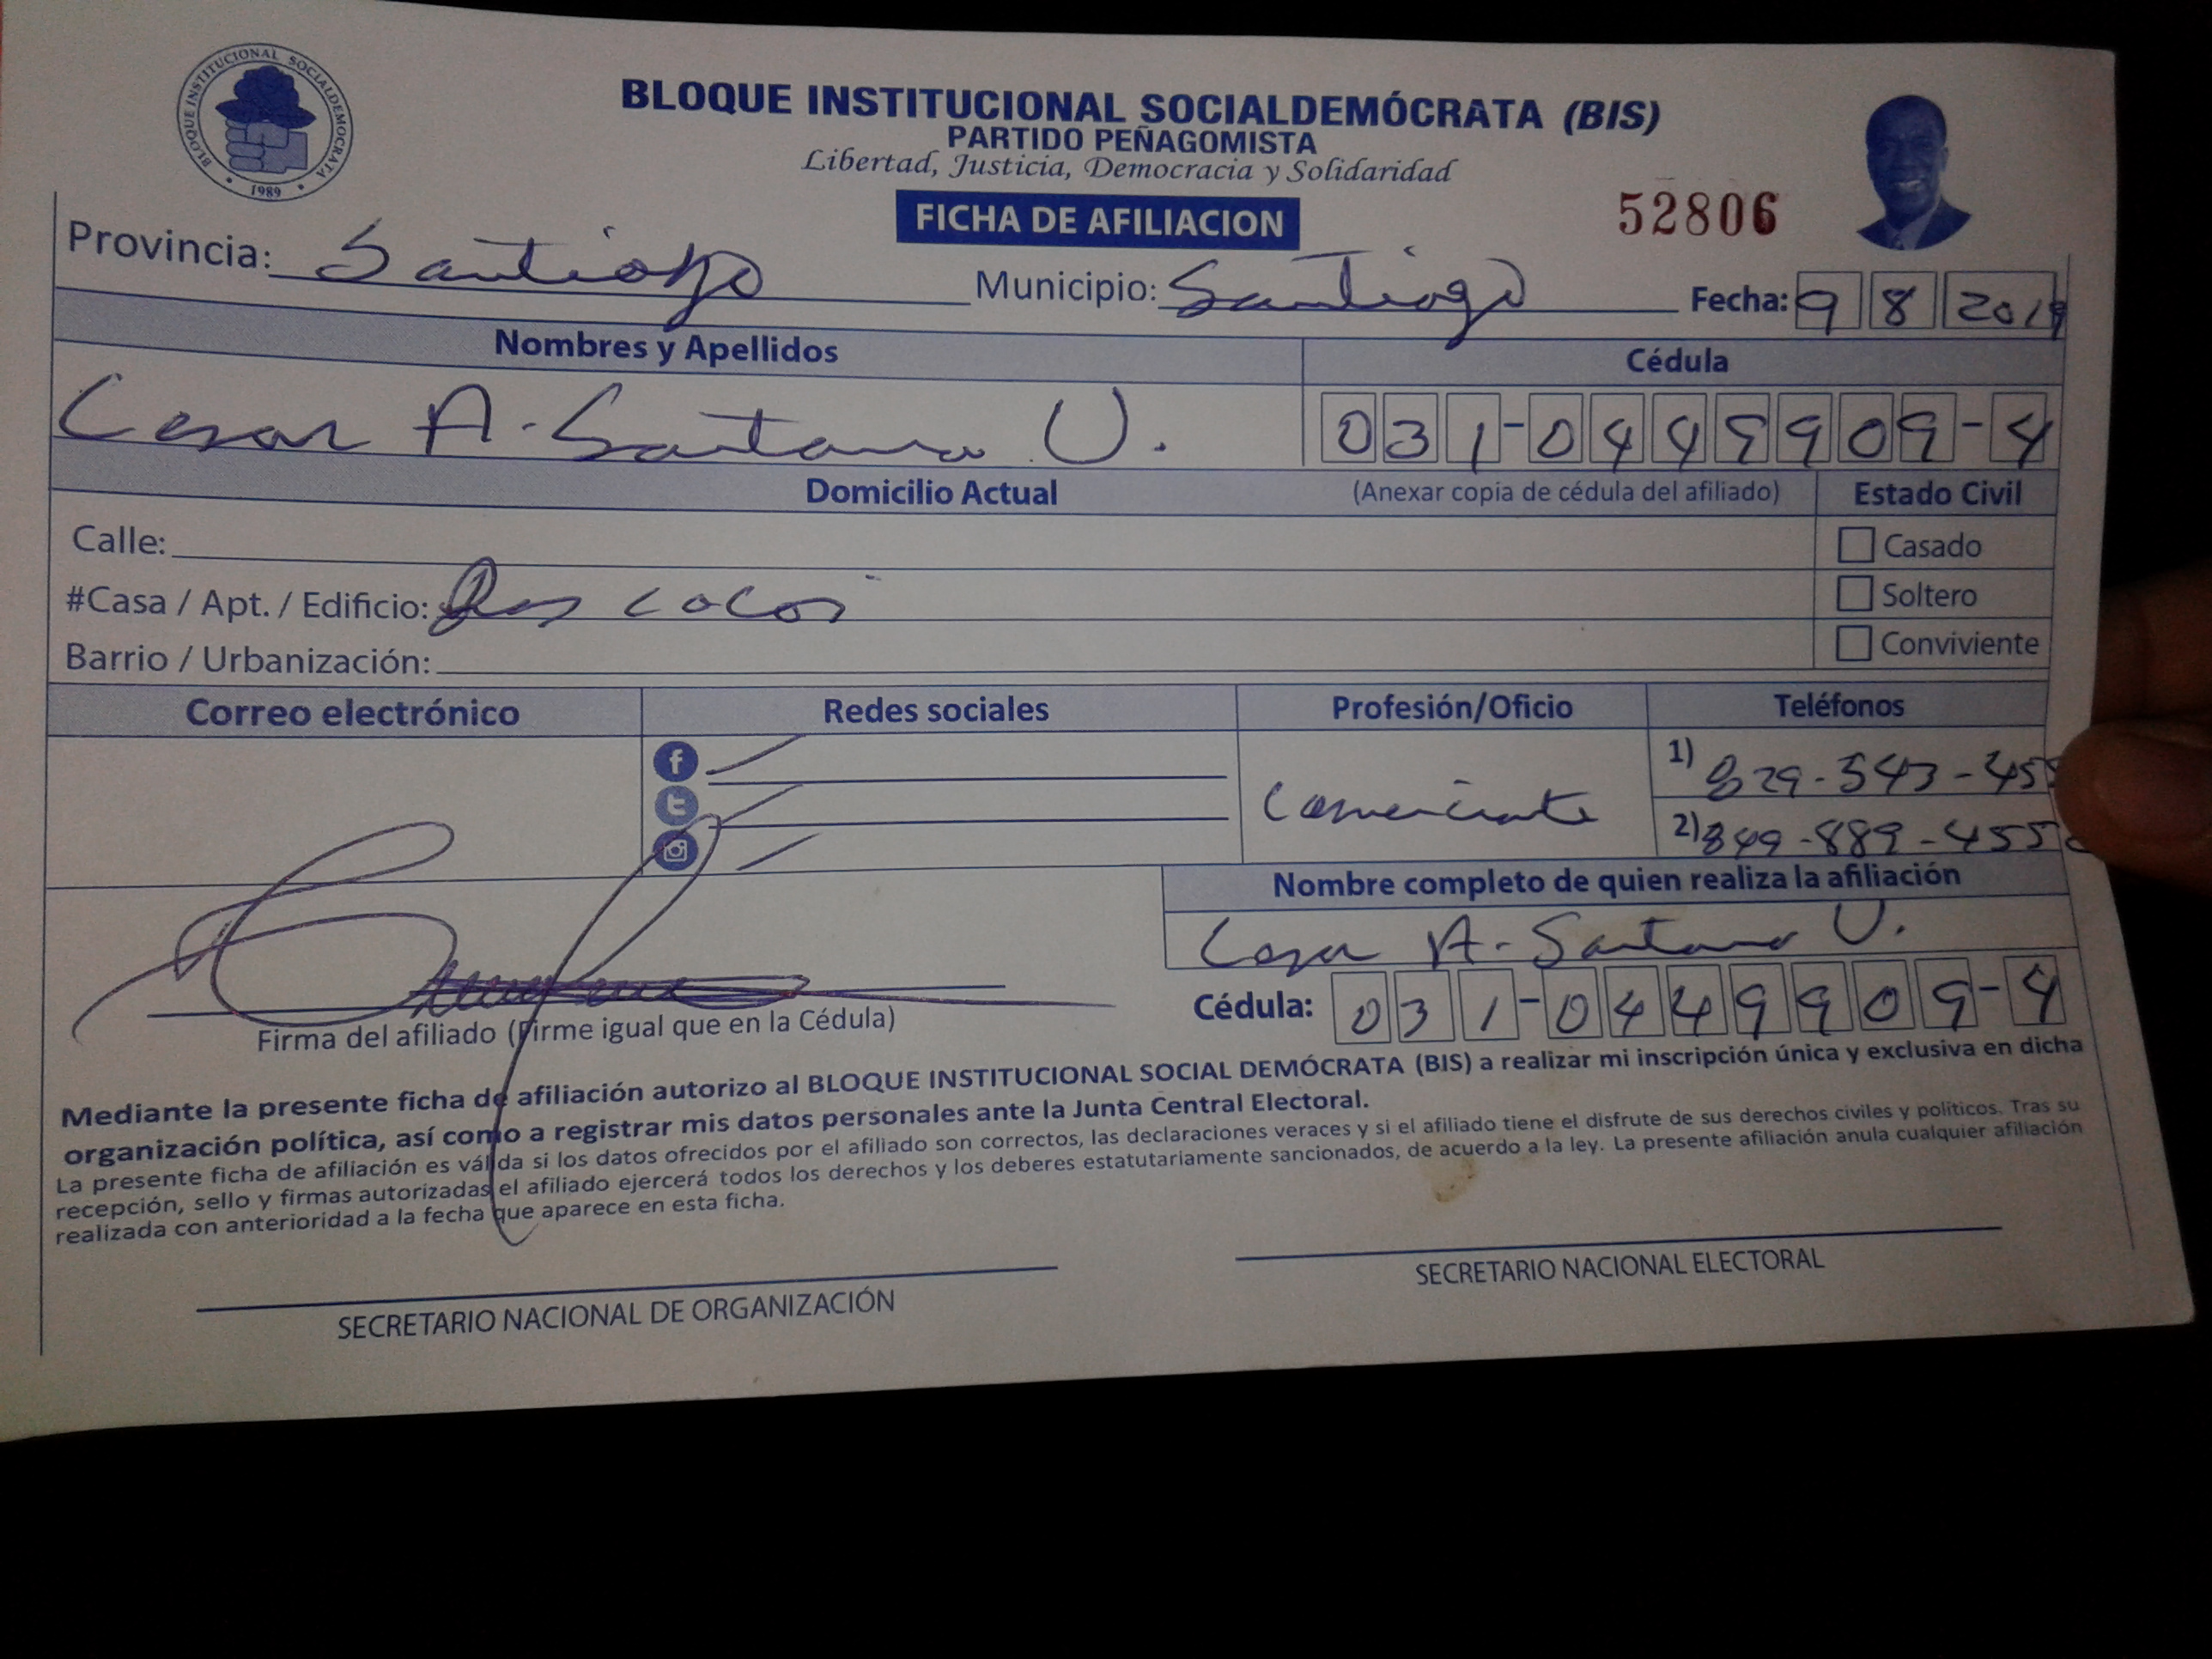 BLOQUE INSTITUCIONAL SOCIALDEMOCRATA
1989
BLOQUE INSTITUCIONAL SOCIALDEMÓCRATA (BIS)
PARTIDO PEÑAGOMISTA
Libertad, Justicia, Democracia y Solidaridad
FICHA DE AFILIACION
52806
Provincia: Santiago Municipio: Santiago Fecha: 9 8 2019
Nombres y Apellidos Cédula
Cesar A. Santana U. 031-0449909-4
Domicilio Actual (Anexar copia de cédula del afiliado) Estado Civil
Calle: Casado
#Casa / Apt. / Edificio: Los cocos Soltero
Barrio / Urbanización: Conviviente
Correo electrónico Redes sociales Profesión/Oficio Teléfonos
Comerciante
1) 829-543-455
2) 849-889-455
Nombre completo de quien realiza la afiliación
Cesar A. Santana U.
Cédula: 031-0449909-4
Firma del afiliado (Firme igual que en la Cédula)
Mediante la presente ficha de afiliación autorizo al BLOQUE INSTITUCIONAL SOCIAL DEMÓCRATA (BIS) a realizar mi inscripción única y exclusiva en dicha
organización política, así como a registrar mis datos personales ante la Junta Central Electoral.
La presente ficha de afiliación es válida si los datos ofrecidos por el afiliado son correctos, las declaraciones veraces y si el afiliado tiene el disfrute de sus derechos civiles y políticos. Tras su
recepción, sello y firmas autorizadas el afiliado ejercerá todos los derechos y los deberes estatutariamente sancionados, de acuerdo a la ley. La presente afiliación anula cualquier afiliación
realizada con anterioridad a la fecha que aparece en esta ficha.
SECRETARIO NACIONAL DE ORGANIZACIÓN
SECRETARIO NACIONAL ELECTORAL